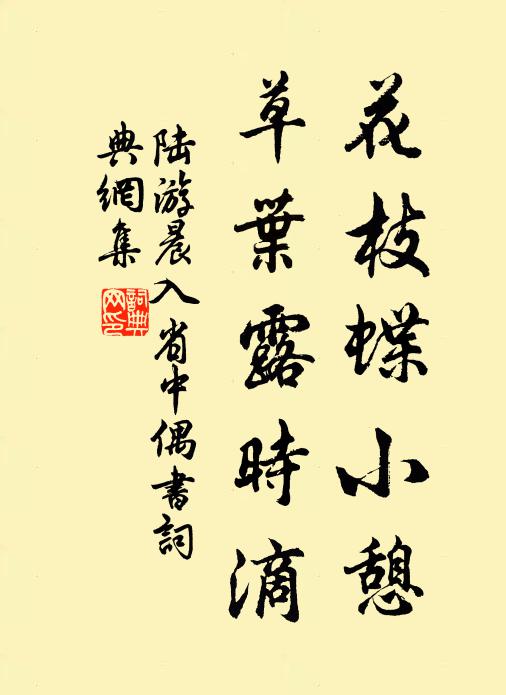 花枝蝶小憩
草葉露時滴
陸游晨入省中偶書詞
典網集
詞典
网印